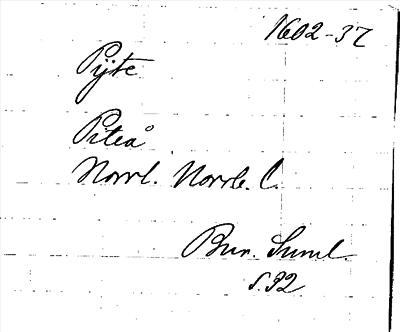 1602-37
Pijte
Piteå
Norrl. Norrb. l.
Bur. Suml.
s. 92